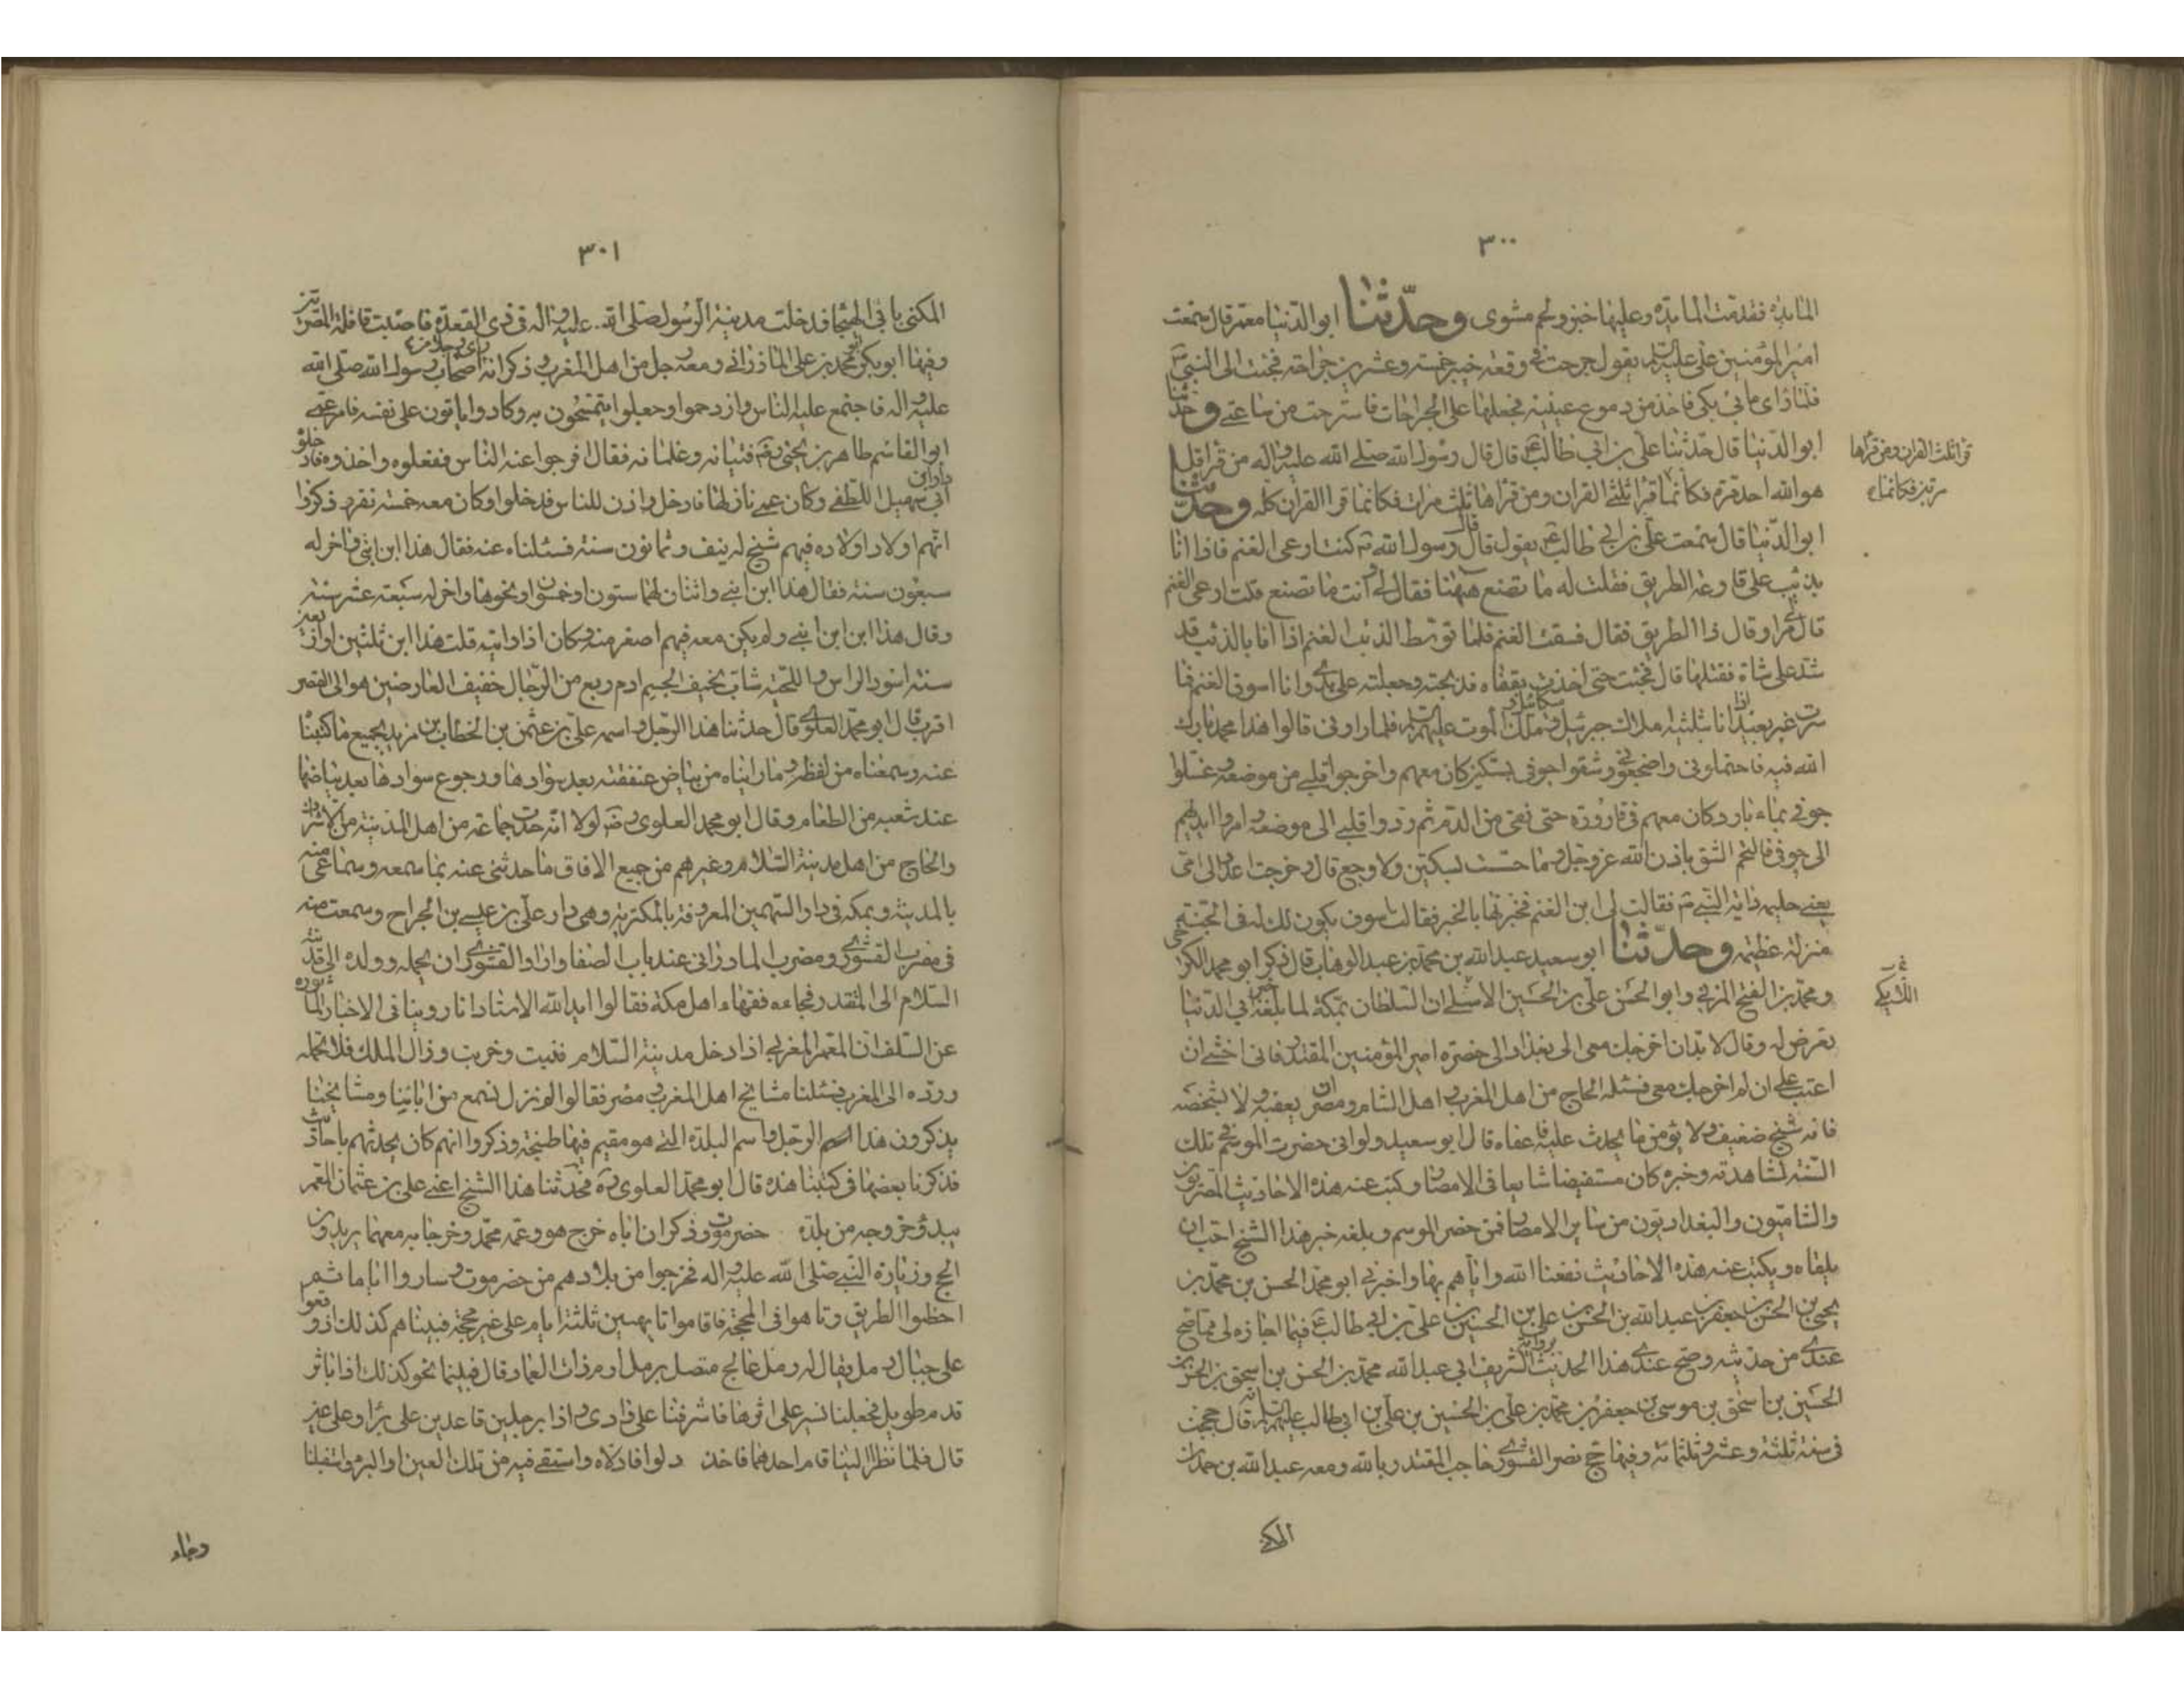 ٣٠٠
المائدة فقدمت المائدة وعليها خبز ولحم مشوى وحدّثنا ابو الدنيا معمر قال سمعت
امير المؤمنين على عليه السلم يقول جرحت فى وقعة خيبر خمسة وعشرين جراحة فجئت الى النبى ص
فلما راى ما بى بكى فاخذ من دموع عينيه فجعلها على الجراحات فاسترحت من ساعتى وحدّثنا
ابو الدنيا قال حدثنا على بن ابى طالب ع قال قال رسول الله صلى الله عليه واله من قرا قل
هو الله احد مرة فكانما قرا ثلث القران ومن قراها ثلث مرات فكانما قرا القران كله وحدّثنا
قرا ثلث القران ومن قراها
مرتين فكانما
ابو الدنيا قال سمعت على بن ابى طالب ع يقول قال رسول الله ص كنت ارعى الغنم فاذا انا
بذئب على قارعة الطريق فقلت له ما تصنع ههنا فقال لى وانت ما تصنع قلت ارعى الغنم
قال مر او قال ذا الطريق فقال فسقت الغنم فلما توسط الذئب الغنم اذا انا بالذئب قد
شد على شاة فقتلها قال فجئت حتى اخذت بقفاه فذبحته وجعلته على يدى وانا اسوق الغنم فما
سرت غير بعيد اذا انا بثلثة املاك جبرئيل وميكائيل وملك الموت عليهم السلم فلما راونى قالوا هذا محمد بارك
الله فيه فاحتملونى واضجعونى وشقوا جوفى بسكين كان معهم واخرجوا قلبى من موضعه وغسلوا
جوفى بماء بارد كان معهم فى قارورة حتى نقى من الدم ثم ردوا قلبى الى موضعه وامروا ايديهم
الى جوفى فالتحم الشق باذن الله عز وجل وما حسست بسكين ولا وجع قال وخرجت اعدو الى امى
يعنى حليمة داية النبى ص فقالت لى اين الغنم فخبرتها بالخبر فقالت سوف يكون لك فى الجنة
منزلة عظيمة وحدّثنا ابو سعيد عبد الله بن محمد بن عبد الوهاب قال ذكر ابو محمد
ومحمد بن الفتح المزنى وابو الحسن على بن الحسين ان السلطان بمكة لما بلغه خبر ابى الدنيا
تعرض له وقال لا بد ان اخرجك معى الى بغداد الى حضرة امير المؤمنين المقتدر فانى اخشى ان
اعتب على ان لم اخرجك معى فسئله الحاج من اهل المغرب واهل الشام ومصر ان يعفيه ولا يشخصه
فانه شيخ ضعيف ولا يؤمن ما يحدث عليه فاعفاه قال ابو سعيد ولو انى حضرت الموسم تلك
السنة لشاهدته وخبره كان مستفيضا شايعا فى الامصار وكتب عنه هذه الاحاديث المصريون
والشاميون والبغداديون من ساير الامصار فمن حضر الموسم وبلغه خبر هذا الشيخ احب ان
يلقاه ويكتب عنه هذه الاحاديث نفعنا الله واياهم بها واخبرنى ابو محمد الحسن بن محمد بن
يحيى بن الحسن بن جعفر بن عبد الله بن الحسن بن على بن الحسين بن على بن ابى طالب ع فيما اجازه لى مما صح
عندى من حديثه وصح عندى هذا الحديث برواية الشريف ابى عبد الله محمد بن الحسن بن اسحق بن الحسن بن
الحسين بن اسحق بن موسى بن جعفر بن محمد بن على بن الحسين بن على بن ابى طالب عليهم السلم انه قال حججت
فى سنة ثلثة وعشر وثلثمائة وفيها حج نصر القشورى حاجب المقتدر بالله ومعه عبد الله بن حمدان
المكنى
٣٠١
المكنى بابى الهيجا فدخلت مدينة الرسول صلى الله عليه واله فى ذى القعدة فاصبت قافلة المصريين
وفيها ابو بكر محمد بن على الماذرانى ومعه رجل من اهل المغرب وذكر انه راى رجلا من اصحاب رسول الله صلى الله
عليه واله فاجتمع عليه الناس وازدحموا وجعلوا يتمسحون به وكادوا ياتون على نفسه فامر عمى
ابو القاسم طاهر بن يحيى رضه فتيانه وغلمانه فقال افرجوا عنه الناس ففعلوه واخذوه فادخلوه
دار ابن ابى سهيل اللطفى وكان عمى نازلها فادخل واذن للناس فدخلوا وكان معه خمسة نفر وذكروا
انهم اولاد اولاده فيهم شيخ له نيف وثمانون سنة فسئلناه عنه فقال هذا ابن ابنى واخر له
سبعون سنة فقال هذا ابن ابنى واثنان لهما ستون او خمسون او نحوها واخر له سبعة عشر سنة
وقال هذا ابن ابن ابنى ولم يكن معه فيهم اصغر منه وكان اذا رايته قلت هذا ابن ثلثين او اربعين
سنة اسود الراس واللحية شاب نحيف الجسم ادم ربع من الرجال خفيف العارضين هو الى القصر
اقرب قال ابو محمد العلوى قال حدثنا هذا الرجل واسمه على بن عثمن بن الخطاب بن مزيد بجميع ما كتبنا
عنه وسمعناه من لفظه وما رايناه من بياض عنفقته بعد سوادها ورجوع سوادها بعد بياضها
عند شبعه من الطعام وقال ابو محمد العلوى رضه لولا انه حدث جماعة من اهل المدينة من الاشراف
والحاج من اهل مدينة السلام وغيرهم من جميع الافاق ما حدثنى عنه بما سمعه وسماعى منه
بالمدينة وبمكة فى دار السهميين المعروفة بالمكترية وهى دار على بن عيسى بن الجراح وسمعت منه
فى مضرب القشورى ومضرب الماذرانى عند باب الصفا واراد القشورى ان يحمله وولده الى مدينة
السلام الى المقتدر فجاءه فقهاء اهل مكة فقالوا ايد الله الاستاد انا روينا فى الاخبار الماثورة
عن السلف ان المعمر المغربى اذا دخل مدينة السلام فنيت وخربت وزال الملك فلا تحمله
ورده الى المغرب فسئلنا مشايخ اهل المغرب ومصر فقالوا لم نزل نسمع من ابائنا ومشايخنا
يذكرون هذا الرجل واسم البلدة التى هو مقيم فيها طنجة وذكروا انهم كان يحدثهم باحاديث
فذكرنا بعضها فى كتابنا هذه قال ابو محمد العلوى ره فحدثنا هذا الشيخ اعنى على بن عثمان المعمر
ببدؤ خروجه من بلدة حضرموت وذكر ان اباه خرج هو وعمه محمد وخرجا به معهما يريدون
الحج وزيارة النبى صلى الله عليه واله فخرجوا من بلادهم من حضرموت وساروا اياما ثم
اخطوا الطريق وتاهوا فى المحجة فاقاموا تايهين ثلثة ايام على غير محجة فبيناهم كذلك اذ وقعوا
على جبال رمل يقال له رمل عالج متصل برمل ارم ذات العماد قال فبينما نحو كذلك اذا باثر
قدم طويل فجعلنا نسير على اثرها فاشرفنا على وادى واذا برجلين قاعدين على بئر او على عين
قال فلما نظرا الينا قام احدهما فاخذ دلوا فادلاه واستقى فيه من تلك العين او البئر واستقبلنا
وجاء